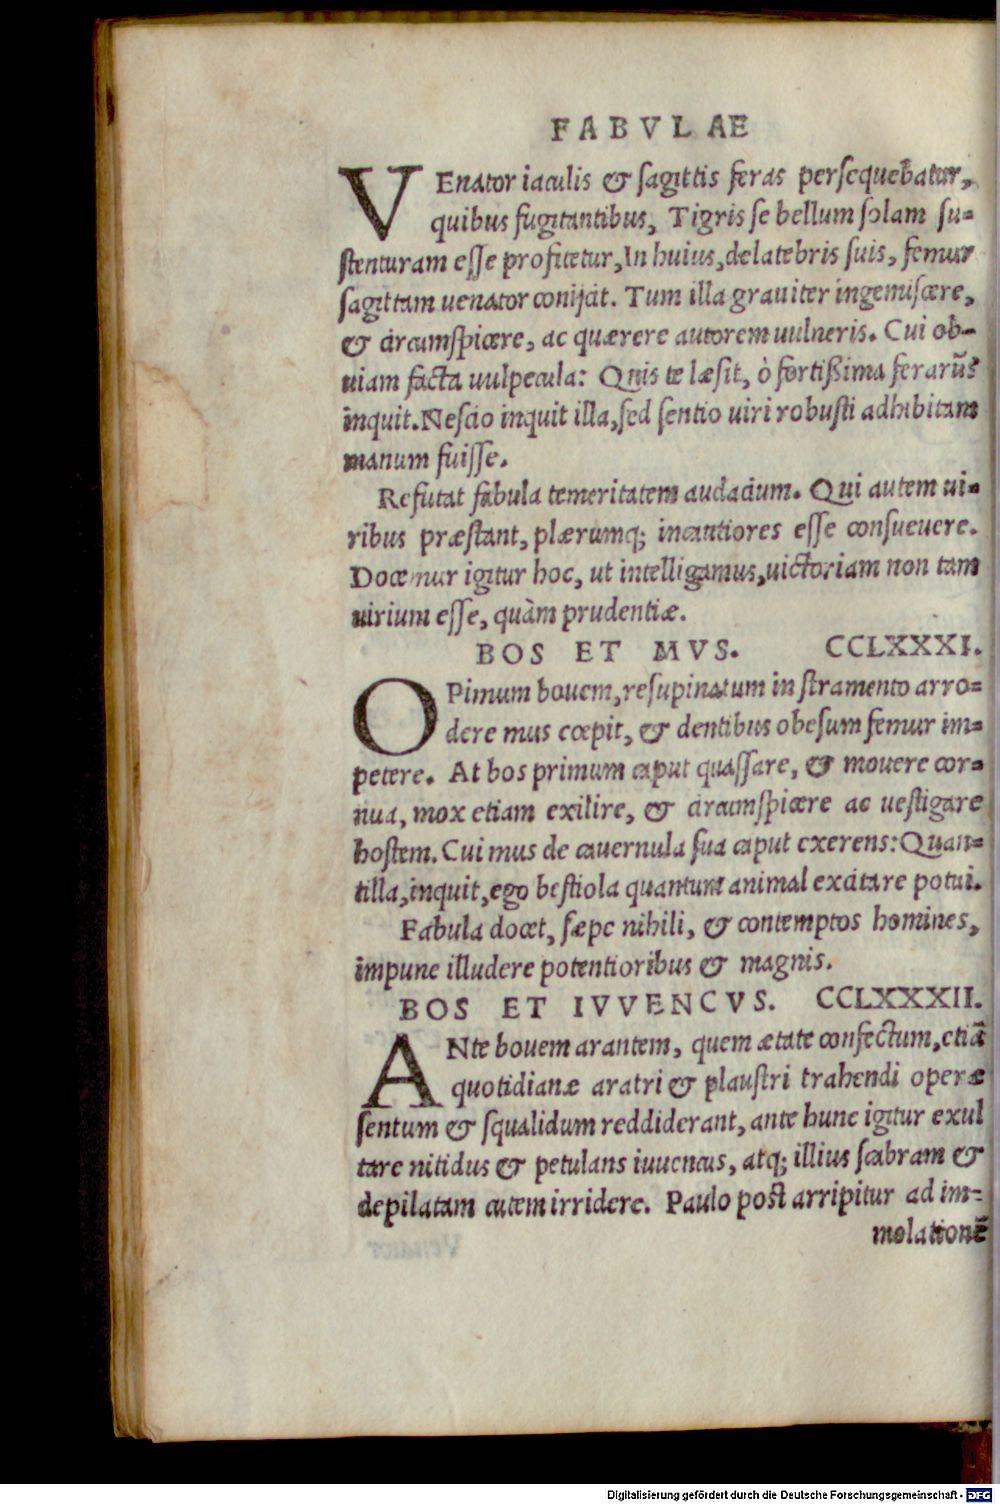 FABVLAE
VEnator iaculis & sagittis feras persequebatur,
quibus fugitantibus, Tigris se bellum solam su=
stenturam esse profitetur, In huius, de latebris suis, femur
sagittam uenator conijcit. Tum illa grauiter ingemiscere,
& circumspicere, ac quærere autorem uulneris. Cui ob=
uiam facta uulpecula: Quis te læsit, ò fortißima ferarũ?
inquit. Nescio inquit illa, sed sentio uiri robusti adhibitam
manum fuisse.
Refutat fabula temeritatem audacium. Qui autem ui=
ribus præstant, plærumq; incautiores esse consueuere.
Docemur igitur hoc, ut intelligamus, uictoriam non tam
uirium esse, quàm prudentiæ.
BOS ET MVS. CCLXXXI.
OPimum bouem, resupinatum in stramento arro=
dere mus cœpit, & dentibus obesum femur im=
petere. At bos primum caput quassare, & mouere cor=
nua, mox etiam exilire, & circumspicere ac uestigare
hostem. Cui mus de cauernula sua caput exerens: Quan=
tilla, inquit, ego bestiola quantum animal excitare potui.
Fabula docet, sæpe nihili, & contemptos homines,
impune illudere potentioribus & magnis.
BOS ET IVVENCVS. CCLXXXII.
ANte bouem arantem, quem ætate confectum, etiã
quotidianæ aratri & plaustri trahendi operæ
sentum & squalidum reddiderant, ante hunc igitur exul
tare nitidus & petulans iuuencus, atq; illius scabram &
depilatam cutem irridere. Paulo post arripitur ad im=
molationẽ
Digitalisierung gefördert durch die Deutsche Forschungsgemeinschaft - DFG